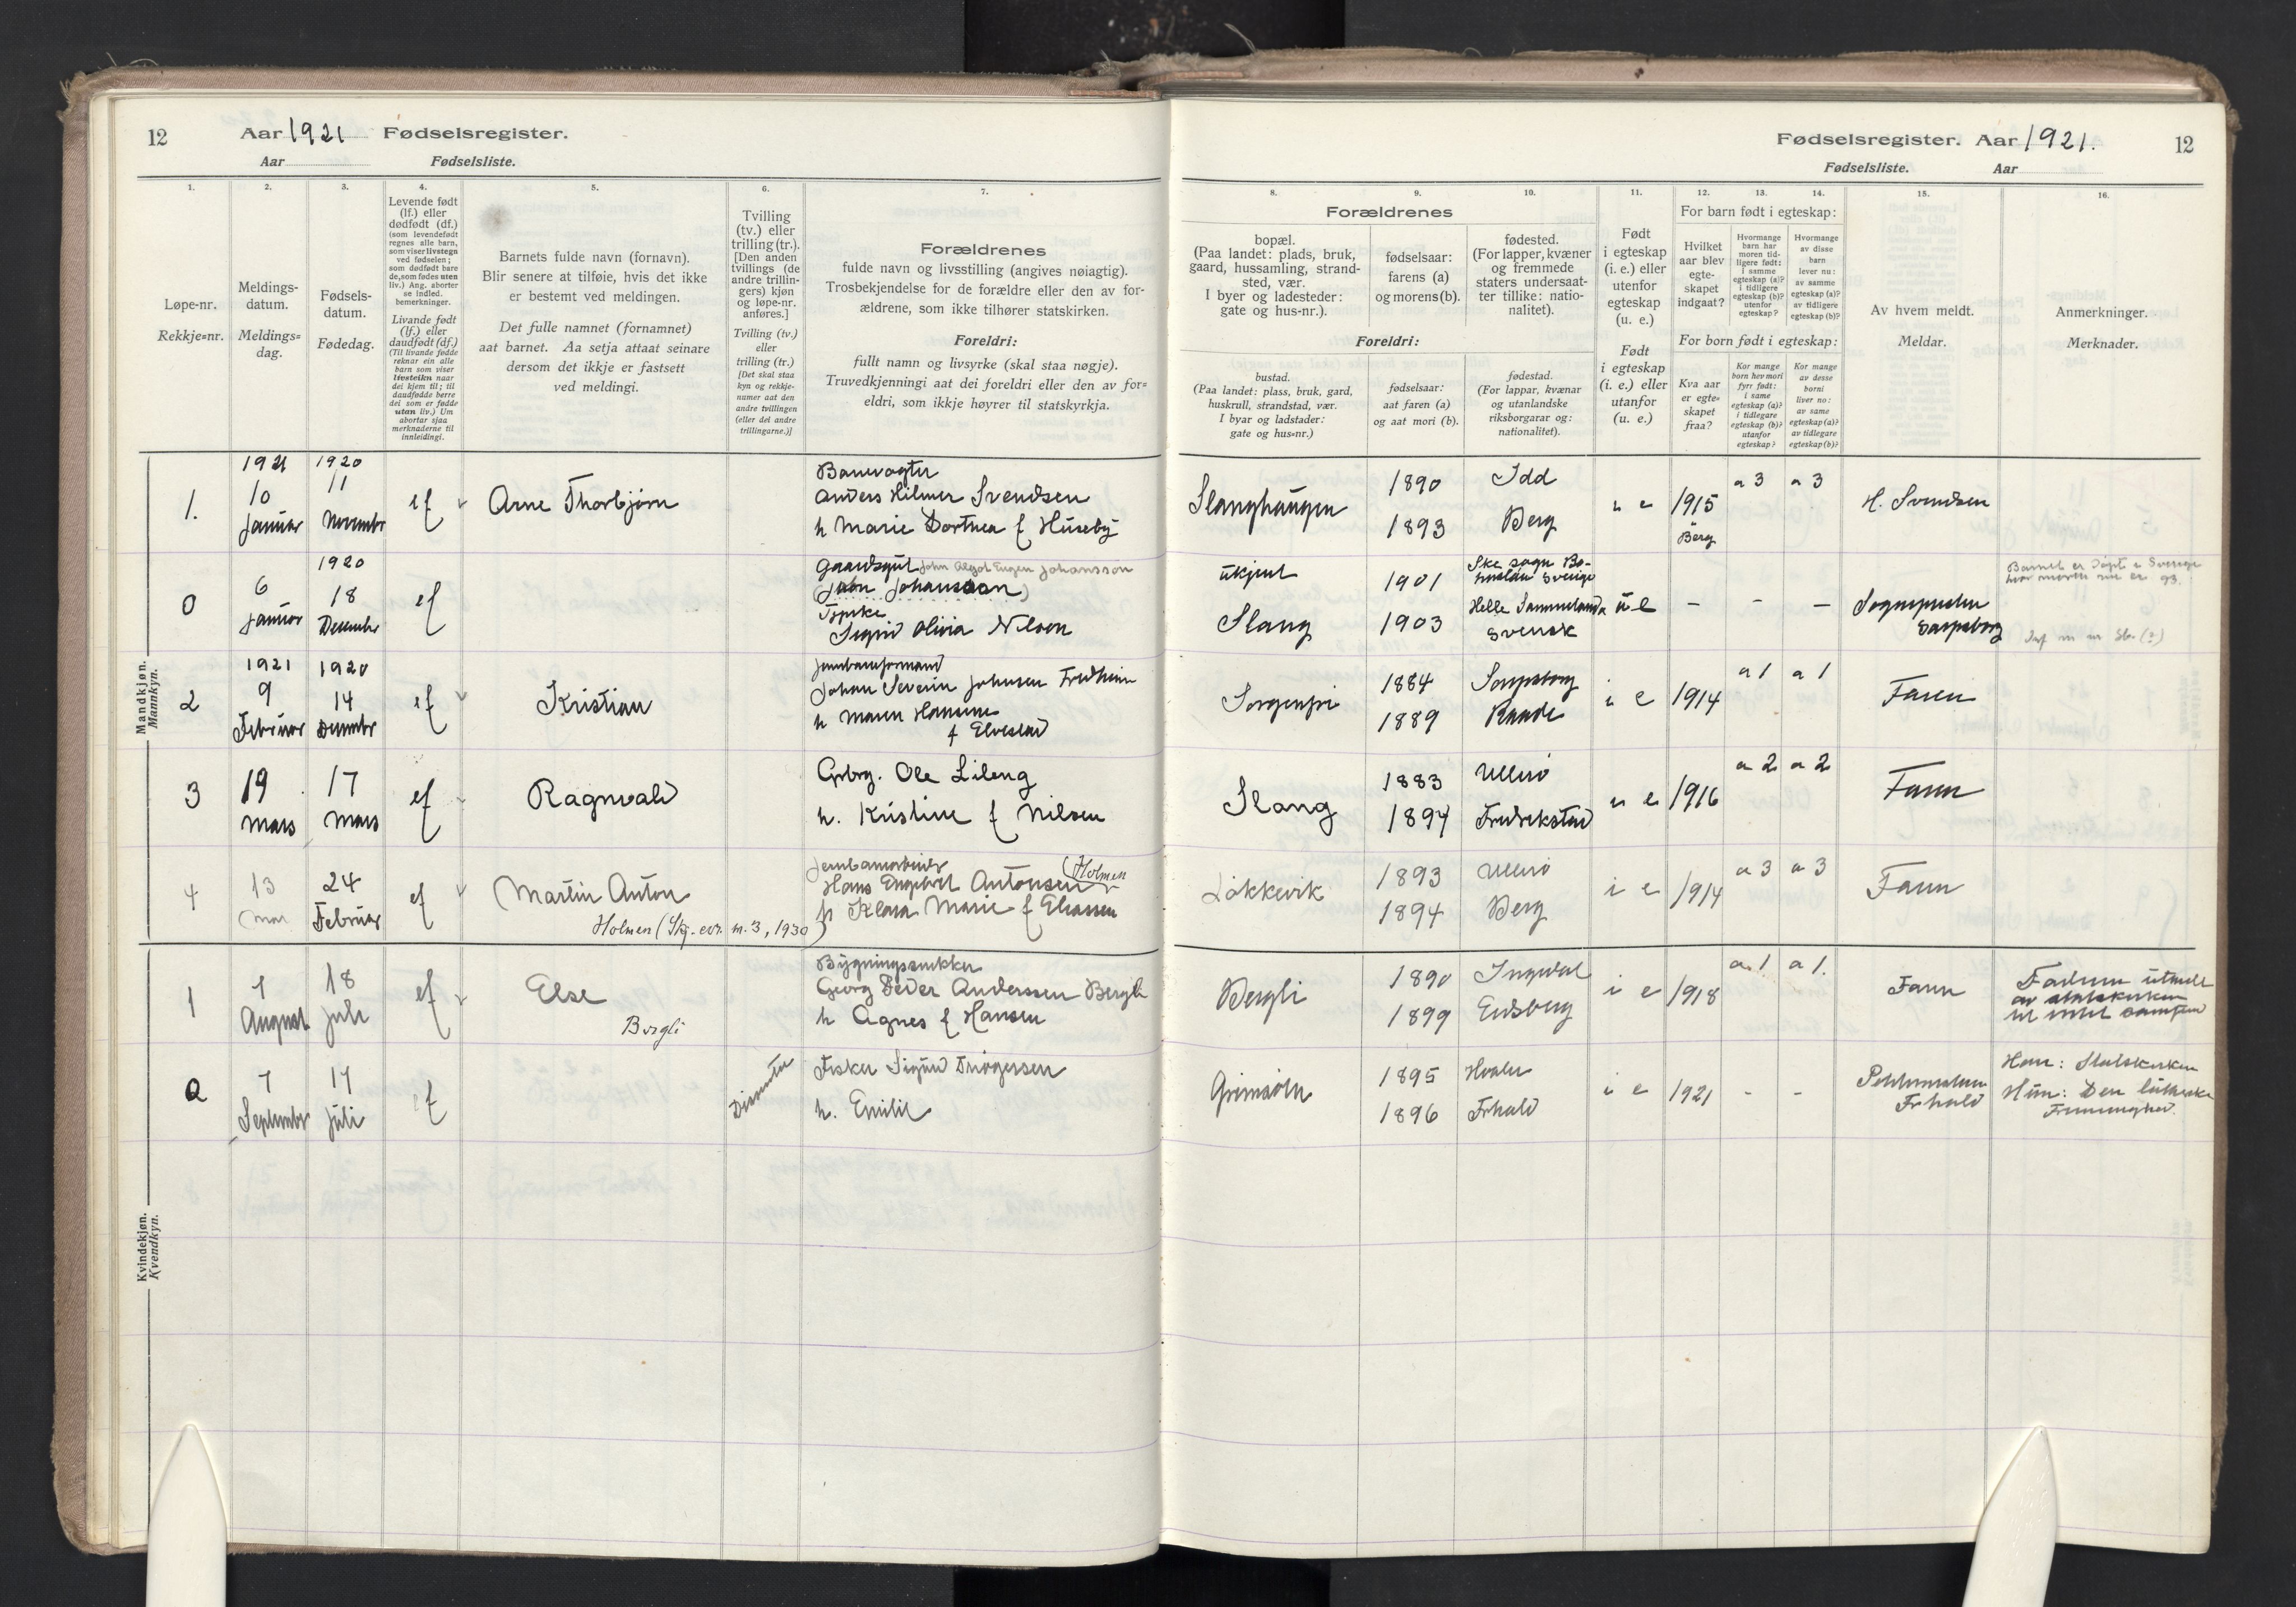 12 Aar 1921 Fødselsregister.
Aar Fødselsliste.
Fødselsregister. Aar 1921. 12
Fødselsliste. Aar
1. 2. 3. 4. 5. 6. 7.
Løpe-nr.
Rekkje=nr.
Meldings-
datum.
Meldings=
dag.
Fødsels-
datum.
Fødedag.
Levende født
(lf.) eller
dødfødt (df.)
(som levendefødt
regnes alle barn,
som viser livstegn
ved fødselen;
som dødfødt bare
de, som fødes uten
liv.) Ang. aborter
se indled.
bemerkninger.
Livande født
(lf.) eller
daudfødt (df.)
(Til livande fødde
reknar ein alle
barn som viser
livsteikn naar
dei kjem til; til
daudfødde berre
dei som er fødde
utan liv.) Um
abortar sjaa
merknaderne til
innleidingi.
Barnets fulde navn (fornavn).
Blir senere at tilføie, hvis det ikke
er bestemt ved meldingen.
Det fulle namnet (fornamnet)
aat barnet. Aa setja attaat seinare
dersom det ikkje er fastsett
ved meldingi.
Tvilling
(tv.) eller
trilling (tr.).
[Den anden
tvillings (de
andre trillin-
gers) kjøn
og løpe-nr.
anføres.]
Tvilling (tv.)
eller
trilling (tr.)
[Det skal staa
kyn og rekkje-
numer aat den
andre tvillingen
(eller dei andre
trillingarne.)]
Forældrenes
fulde navn og livsstilling (angives nøiagtig).
Trosbekjendelse for de forældre eller den av for-
ældrene, som ikke tilhører statskirken.
Foreldri:
fullt namn og livsyrke (skal staa nøgje).
Truvedkjenningi aat dei foreldri eller den av for=
eldri, som ikkje høyrer til statskyrkja.
8. 9. 10. 11. 12. 13. 14. 15. 16.
Forældrenes
bopæl.
(Paa landet: plads, bruk,
gaard, hussamling, strand-
sted, vær.
I byer og ladesteder:
gate og hus-nr.).
fødselsaar:
farens (a)
og morens (b).
fødested.
(For lapper, kvæner
og fremmede
staters undersaat-
ter tillike: natio-
nalitet).
Foreldri:
bustad.
(Paa landet: plass, bruk, gard,
huskrull, strandstad, vær.
I byar og ladstader:
gate og hus=nr.)
fødselsaar:
aat faren (a)
og aat mori (b).
fødestad.
(For lappar, kvænar
og utanlandske
riksborgarar og:
nationalitet).
Født
i egteskap
(i. e.) eller
utenfor
egteskap
(u. e.)
Født
i egteskap
(i. e.) eller
utanfor
(u. e.)
For barn født i egteskap:
Hvilket
aar blev
egte-
skapet
indgaat?
Hvormange
barn har
moren tid-
ligere født:
i samme
egteskap (a)?
i tidligere
egteskap (b)?
utenfor
egteskap?
Hvormange
av disse
barn
lever nu:
av samme
egteskap (a)?
av tidligere
egteskap (b)?
For born født i egteskap:
Kva aar
er egte-
skapet
fraa?
Kor mange
born hev mori
fyrr født:
i same
egteskap (a)?
i tidlegare
egteskap (b)?
utanfor
egteskap?
Kor mange
av desse
borni
liver no:
av same
egteskap (a)?
av tidlegare
egteskap (b)?
Av hvem meldt.
Meldar.
Anmerkninger.
Merknader.
Mandkjøn.
Mannkyn.
1921 1920 Banevogter
1. 10 11 ef Arne Thorbjørn Anders Hilmer Svendsen
Januar November h Marie Dorthea f Huseby
Slanghaugen 1890 Idd 1915 a 3 a 3 H. Svendsen
1893 Berg Berg
1920 Gaardsgut John Algot Eugen Johansson
0 6 18 ef (John Johansson)
Januar December Sigrid Olivia Nilsen
ukjent 1901 Sverige
Slang 1903 Svensk u e – – – Sarpsborg
Barnet er døpt i Sverige
1921 1920
2 9 14 ef Kristian Johan Severin Johnsen Fredheim
Februar December h Maren Hansine
f Elvestad
Sorgenfri 1884 Sarpsborg i e 1914 a 1 a 1 Faren
1889 Raade
3 19 17 ef Ragnvald Grbrg. Ole Lileng
Mars Mars h. Kristine f Nilsen
Slang 1883 Ullerø 1916 a 2 a 2 Faren
1894 Fredrikstad
4 13 24 ef Martin Anton Hans Engebret Antonsen (Holmen)
Mar Februar h Klara Marie f Eliassen
Holmen (Skj. evr. nr. 3, 1930)
Løkkevik 1893 Ullerø i e 1914 a 3 a 3 Faren
1894 Berg
Kvindekjøn.
Kvendkyn.
Bygningssnikker
1 7 18 ef Else Georg Peder Anderssen Bergli
August Juli Bergli h Agnes f Hansen
Bergli 1890 Ingedal i e 1918 a 1 a 1. Faren
1899 Eidsberg
2 7 17 ef Dissenter Fisker Sigurd Trögersen
September Juli h. Emilie
Grimsøln 1895 Hvaler i e 1921 - - Frhald
1896 Frhald
Han: Statskirken
Hun: Den lutherske
Frimenighed.